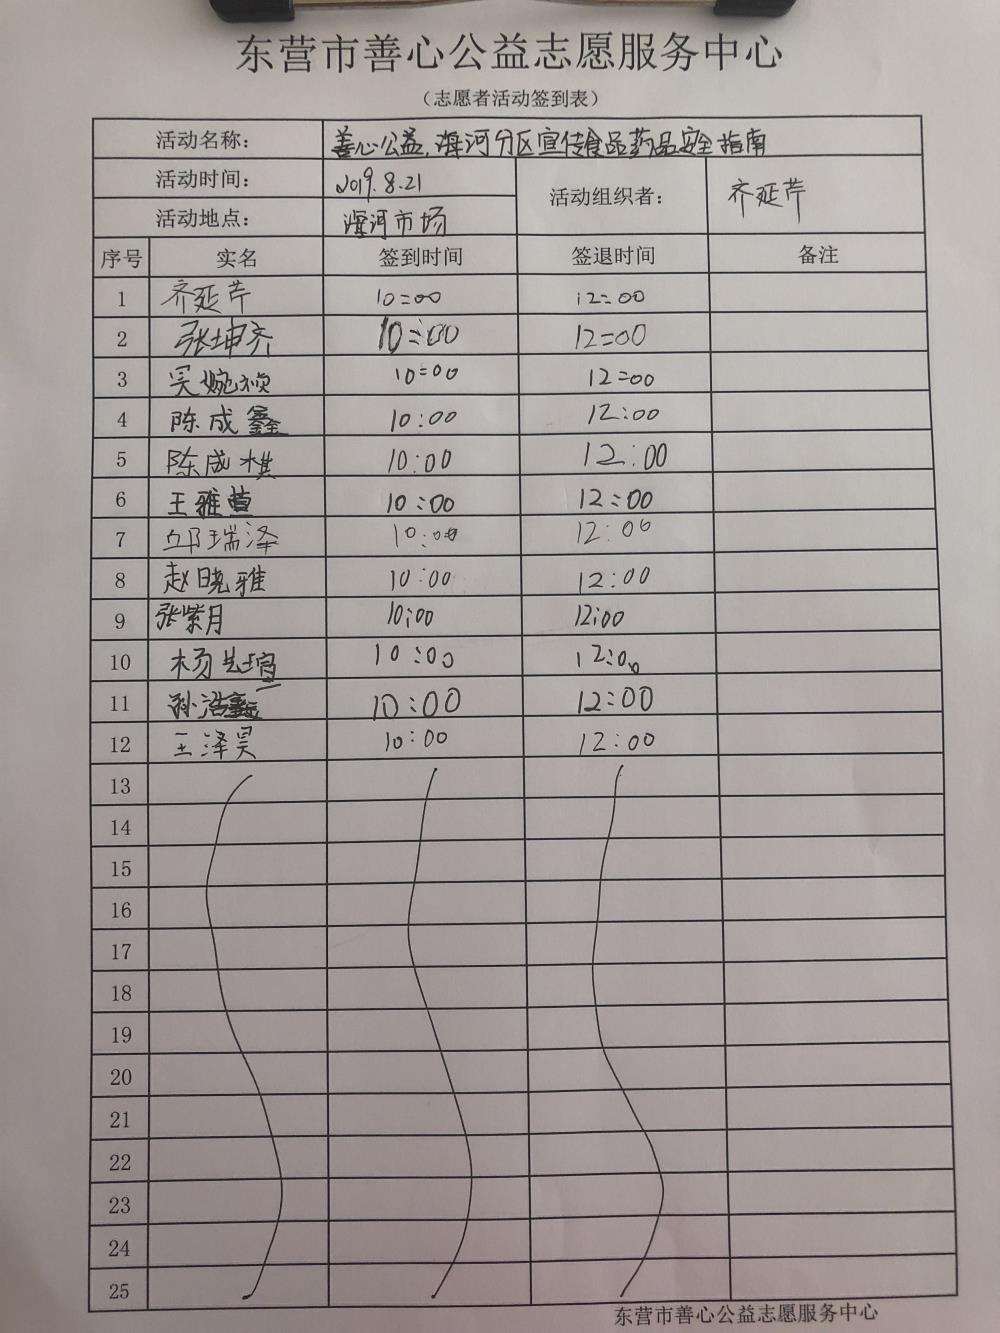 东营市善心公益志愿服务中心
（志愿者活动签到表）
活动名称： 善心公益，海河分区宣传食品药品安全指南
活动时间： 2019.8.21 活动组织者： 齐延芹
活动地点： 海河市场
序号 实名 签到时间 签退时间 备注
1 齐延芹 10:00 12:00
2 张坤齐 10:00 12:00
3 吴婉祯 10:00 12:00
4 陈成鑫 10:00 12:00
5 陈成棋 10:00 12:00
6 王雅萱 10:00 12:00
7 邱瑞泽 10:00 12:00
8 赵晓雅 10:00 12:00
9 张紫月 10:00 12:00
10 杨 10:00 12:00
11 孙浩 10:00 12:00
12 王泽昊 10:00 12:00
13
14
15
16
17
18
19
20
21
22
23
24
25
东营市善心公益志愿服务中心